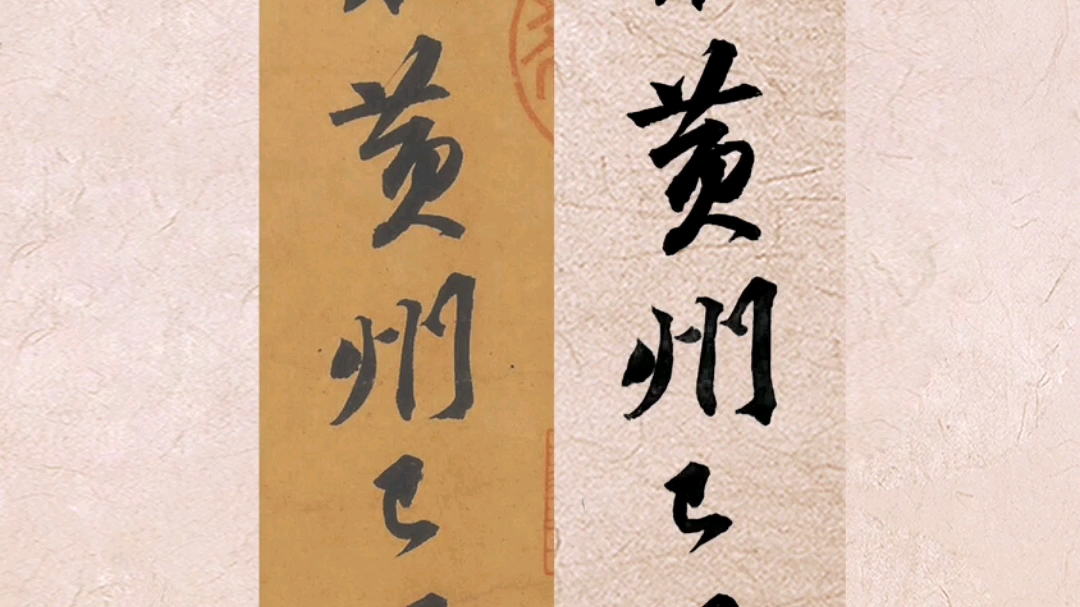 黄州已
黄州已